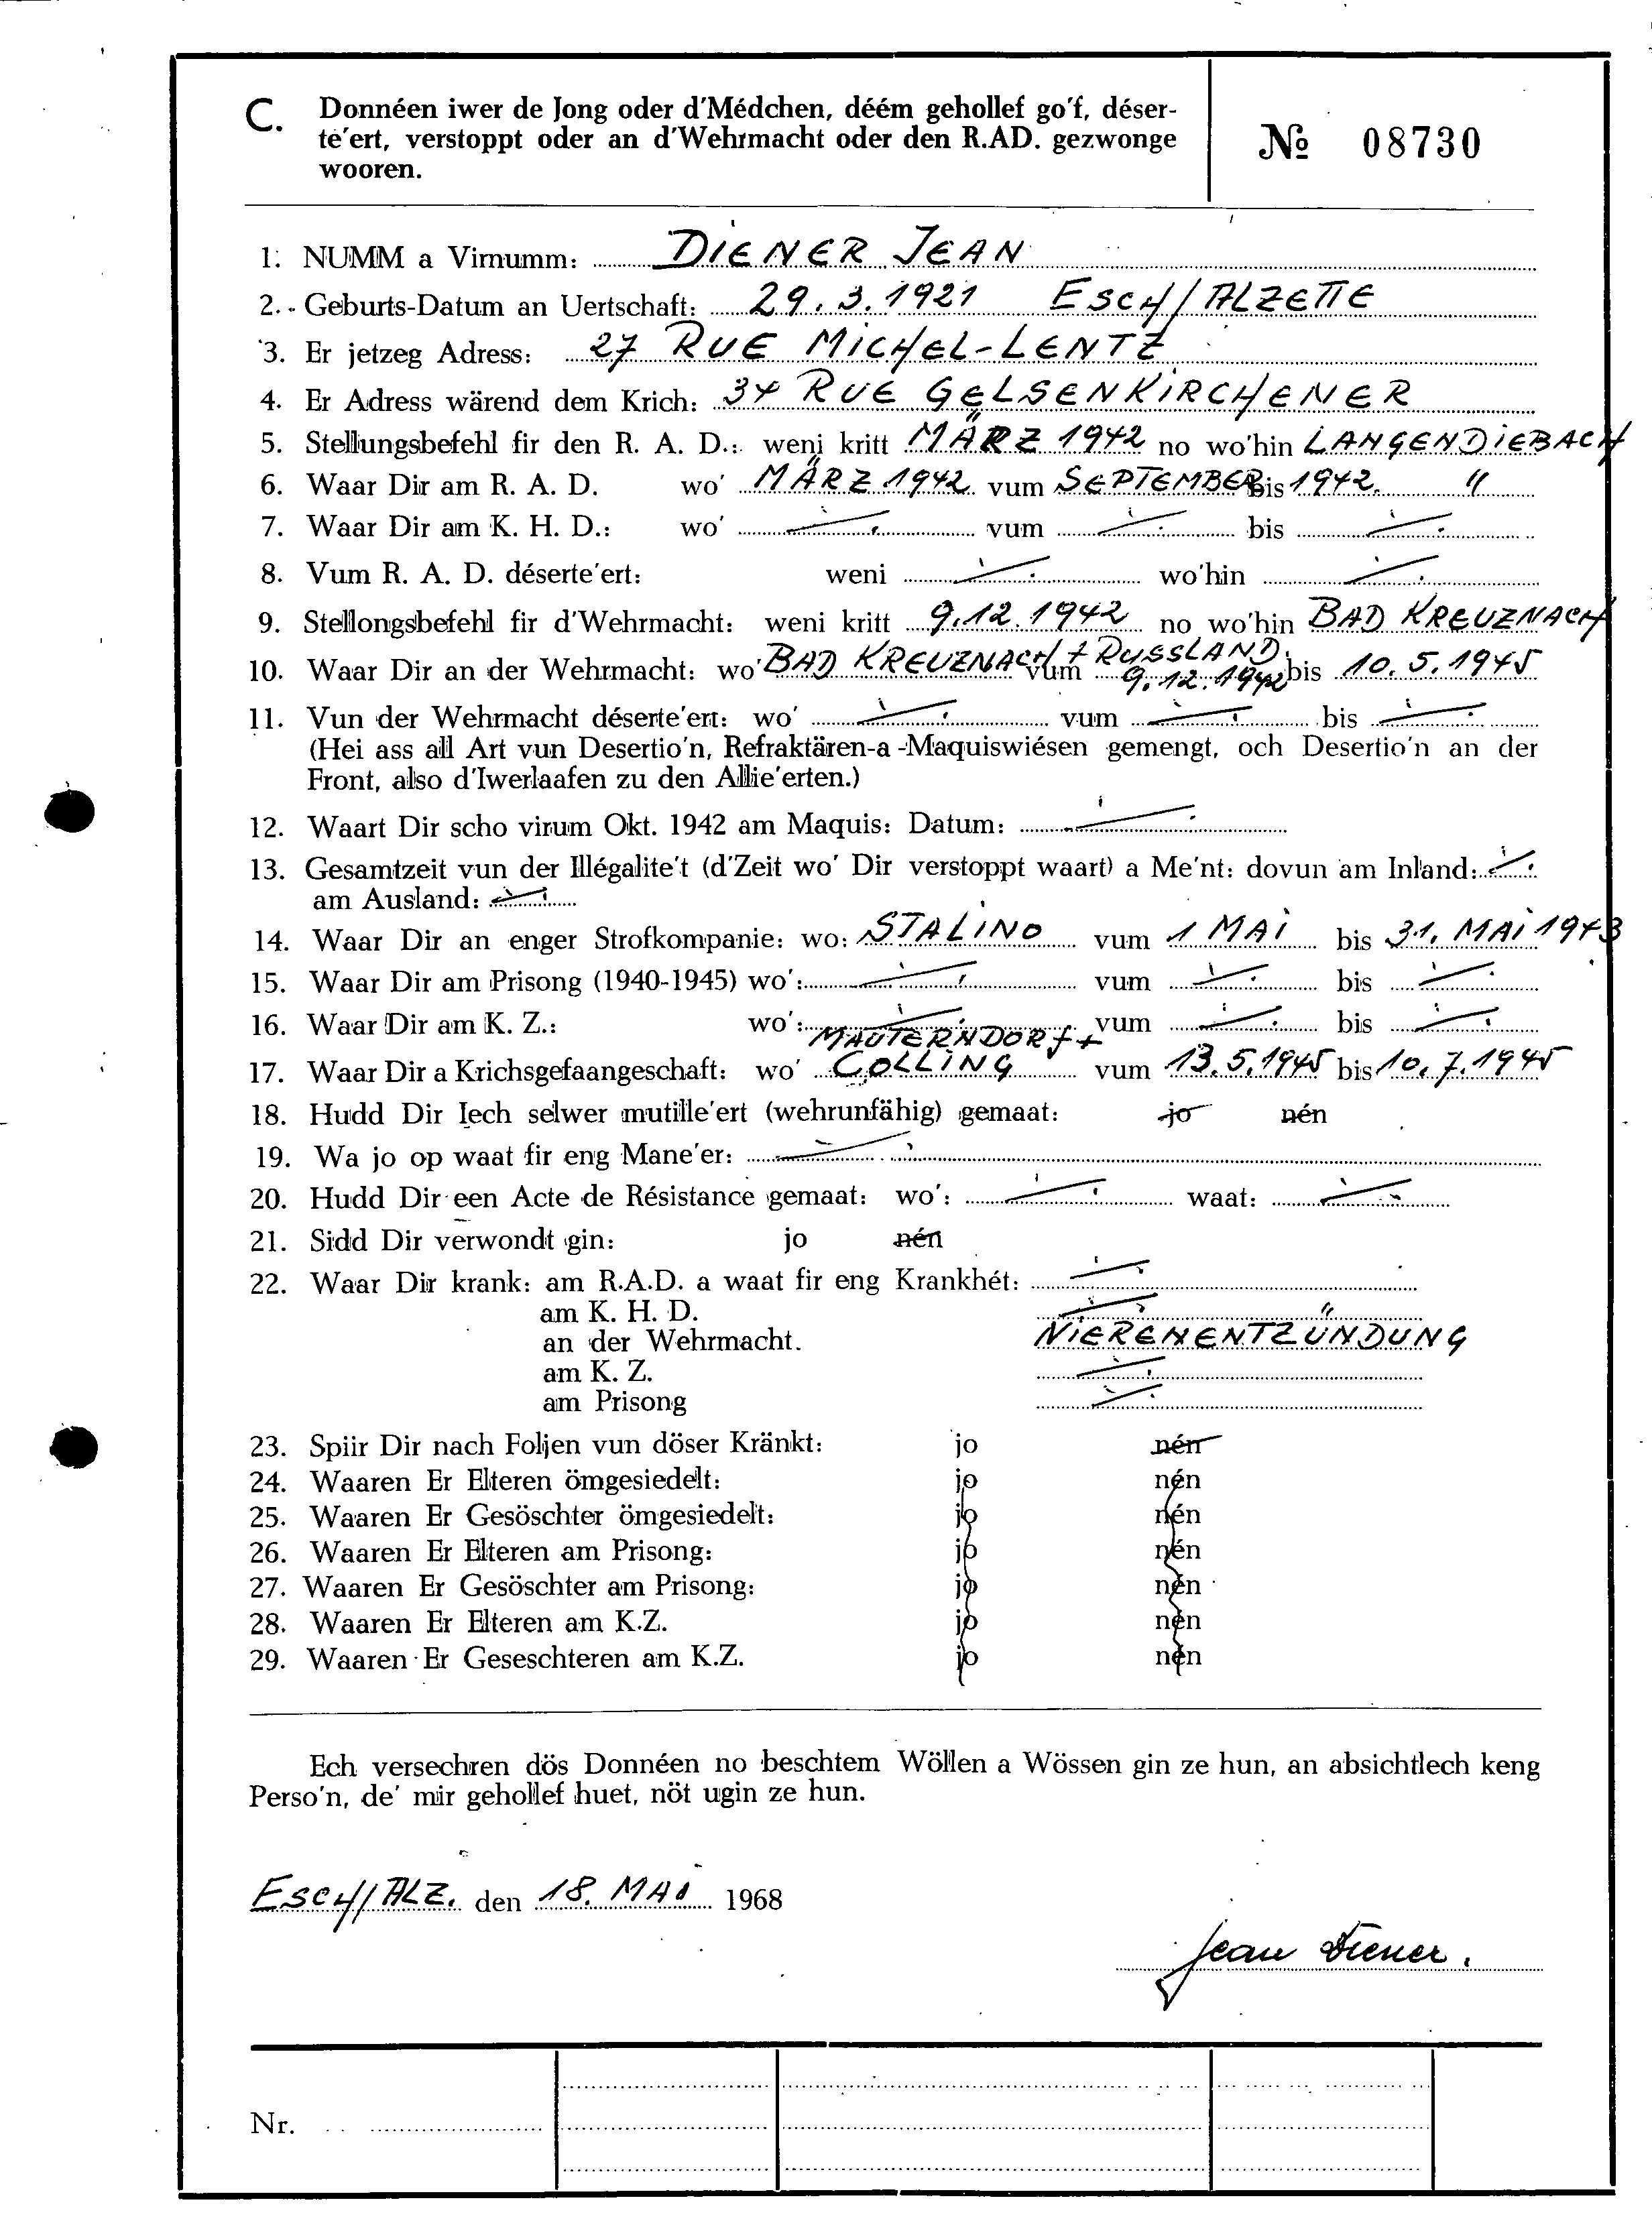 C. Donnéen iwer de Jong oder d'Médchen, déém gehollef go'f, déser-
te'ert, verstoppt oder an d'Wehrmacht oder den R.AD. gezwonge
wooren.
№ 08730
1. NUMM a Virnumm: DIENER JEAN
2. Geburts-Datum an Uertschaft: 29.3.1921 ESCH/ALZETTE
3. Er jetzeg Adress: 27 RUE MICHEL-LENTZ
4. Er Adress wärend dem Krich: 34 RUE GELSENKIRCHENER
5. Stellungsbefehl fir den R. A. D.: weni kritt MÄRZ 1942 no wo'hin LANGENDIEBACH
6. Waar Dir am R. A. D. wo' MÄRZ 1942 vum SEPTEMBER bis 1942. "
7. Waar Dir am K. H. D.: wo' ./. vum ./. bis ./.
8. Vum R. A. D. déserte'ert: weni ./. wo'hin ./.
9. Stellongsbefehl fir d'Wehrmacht: weni kritt 9.12.1942 no wo'hin BAD KREUZNACH
10. Waar Dir an der Wehrmacht: wo' BAD KREUZNACH + RUSSLAND. vum 9.12.1942 bis 10.5.1945
11. Vun der Wehrmacht déserte'ert: wo' ./. vum ./. bis ./.
(Hei ass all Art vun Desertio'n, Refraktären-a-Maquiswiésen gemengt, och Desertio'n an der
Front, also d'Iwerlaafen zu den Allie'erten.)
12. Waart Dir scho virum Okt. 1942 am Maquis: Datum: ./.
13. Gesamtzeit vun der Illégalite't (d'Zeit wo' Dir verstoppt waart) a Me'nt: dovun am Inland: ./.
am Ausland: ./.
14. Waar Dir an enger Strofkompanie: wo: STALINO vum 1 MAI bis 31. MAI 1943
15. Waar Dir am Prisong (1940-1945) wo': ./. vum ./. bis ./.
16. Waar Dir am K. Z.: wo': ./. vum ./. bis ./.
MAUTERNDORF +
17. Waar Dir a Krichsgefaangeschaft: wo' COLLING vum 13.5.1945 bis 10.7.1945
18. Hudd Dir Iech selwer mutille'ert (wehrunfähig) gemaat: jo nén
19. Wa jo op waat fir eng Mane'er: ./.
20. Hudd Dir een Acte de Résistance gemaat: wo': ./. waat: ./.
21. Sidd Dir verwondt gin: jo nén
22. Waar Dir krank: am R.A.D. a waat fir eng Krankhét: ./.
am K. H. D. ./.
an der Wehrmacht. NIERENENTZÜNDUNG
am K. Z. ./.
am Prisong ./.
23. Spiir Dir nach Foljen vun döser Kränkt: jo nén
24. Waaren Er Elteren ömgesiedelt: jo nén
25. Waaren Er Gesöschter ömgesiedelt: jo nén
26. Waaren Er Elteren am Prisong: jo nén
27. Waaren Er Gesöschter am Prisong: jo nén
28. Waaren Er Elteren am K.Z. jo nén
29. Waaren Er Geseschteren am K.Z. jo nén
Ech versechren dös Donnéen no beschtem Wöllen a Wössen gin ze hun, an absichtlech keng
Perso'n, de' mir gehollef huet, nöt ugin ze hun.
ESCH/ALZ. den 18. MAI 1968
Jean Diener.
Nr.